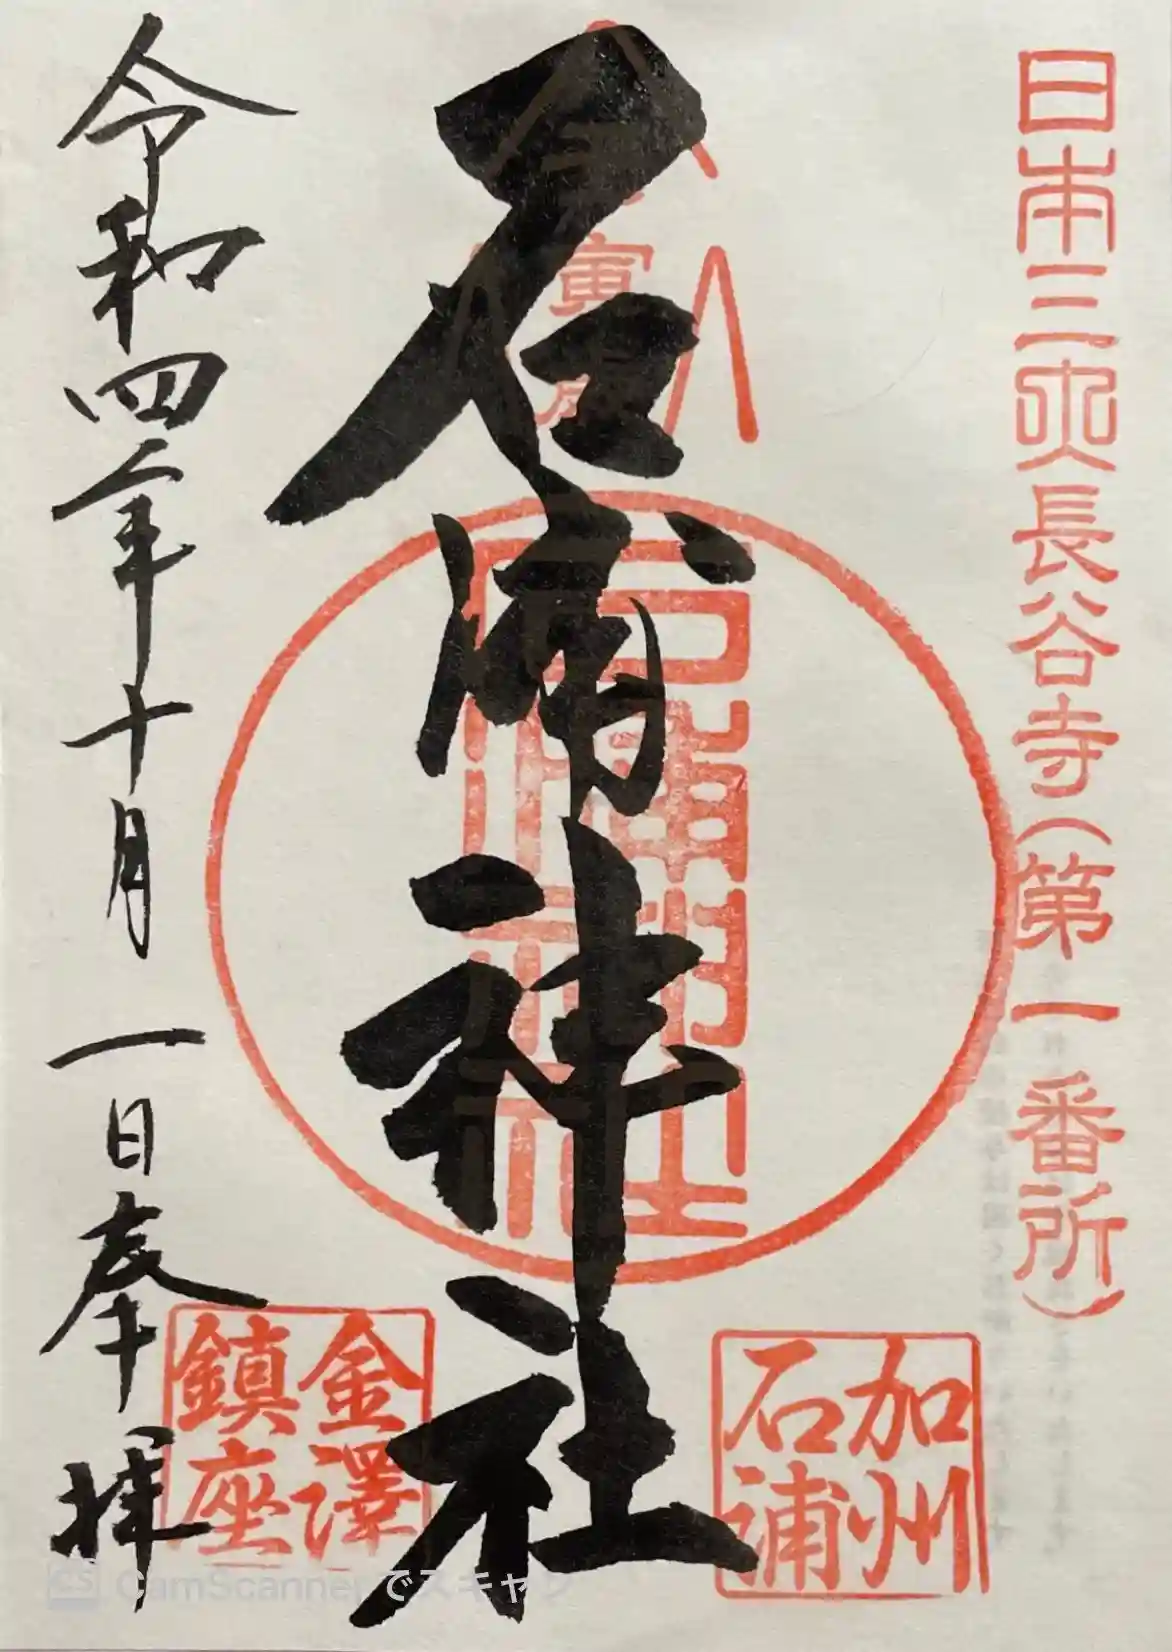 日本三大長谷寺(第一番所)
石浦神社
寅
石浦神社
加州
石浦
金澤
鎮座
令和四年十月一日奉拝
CS CamScannerでスキャン